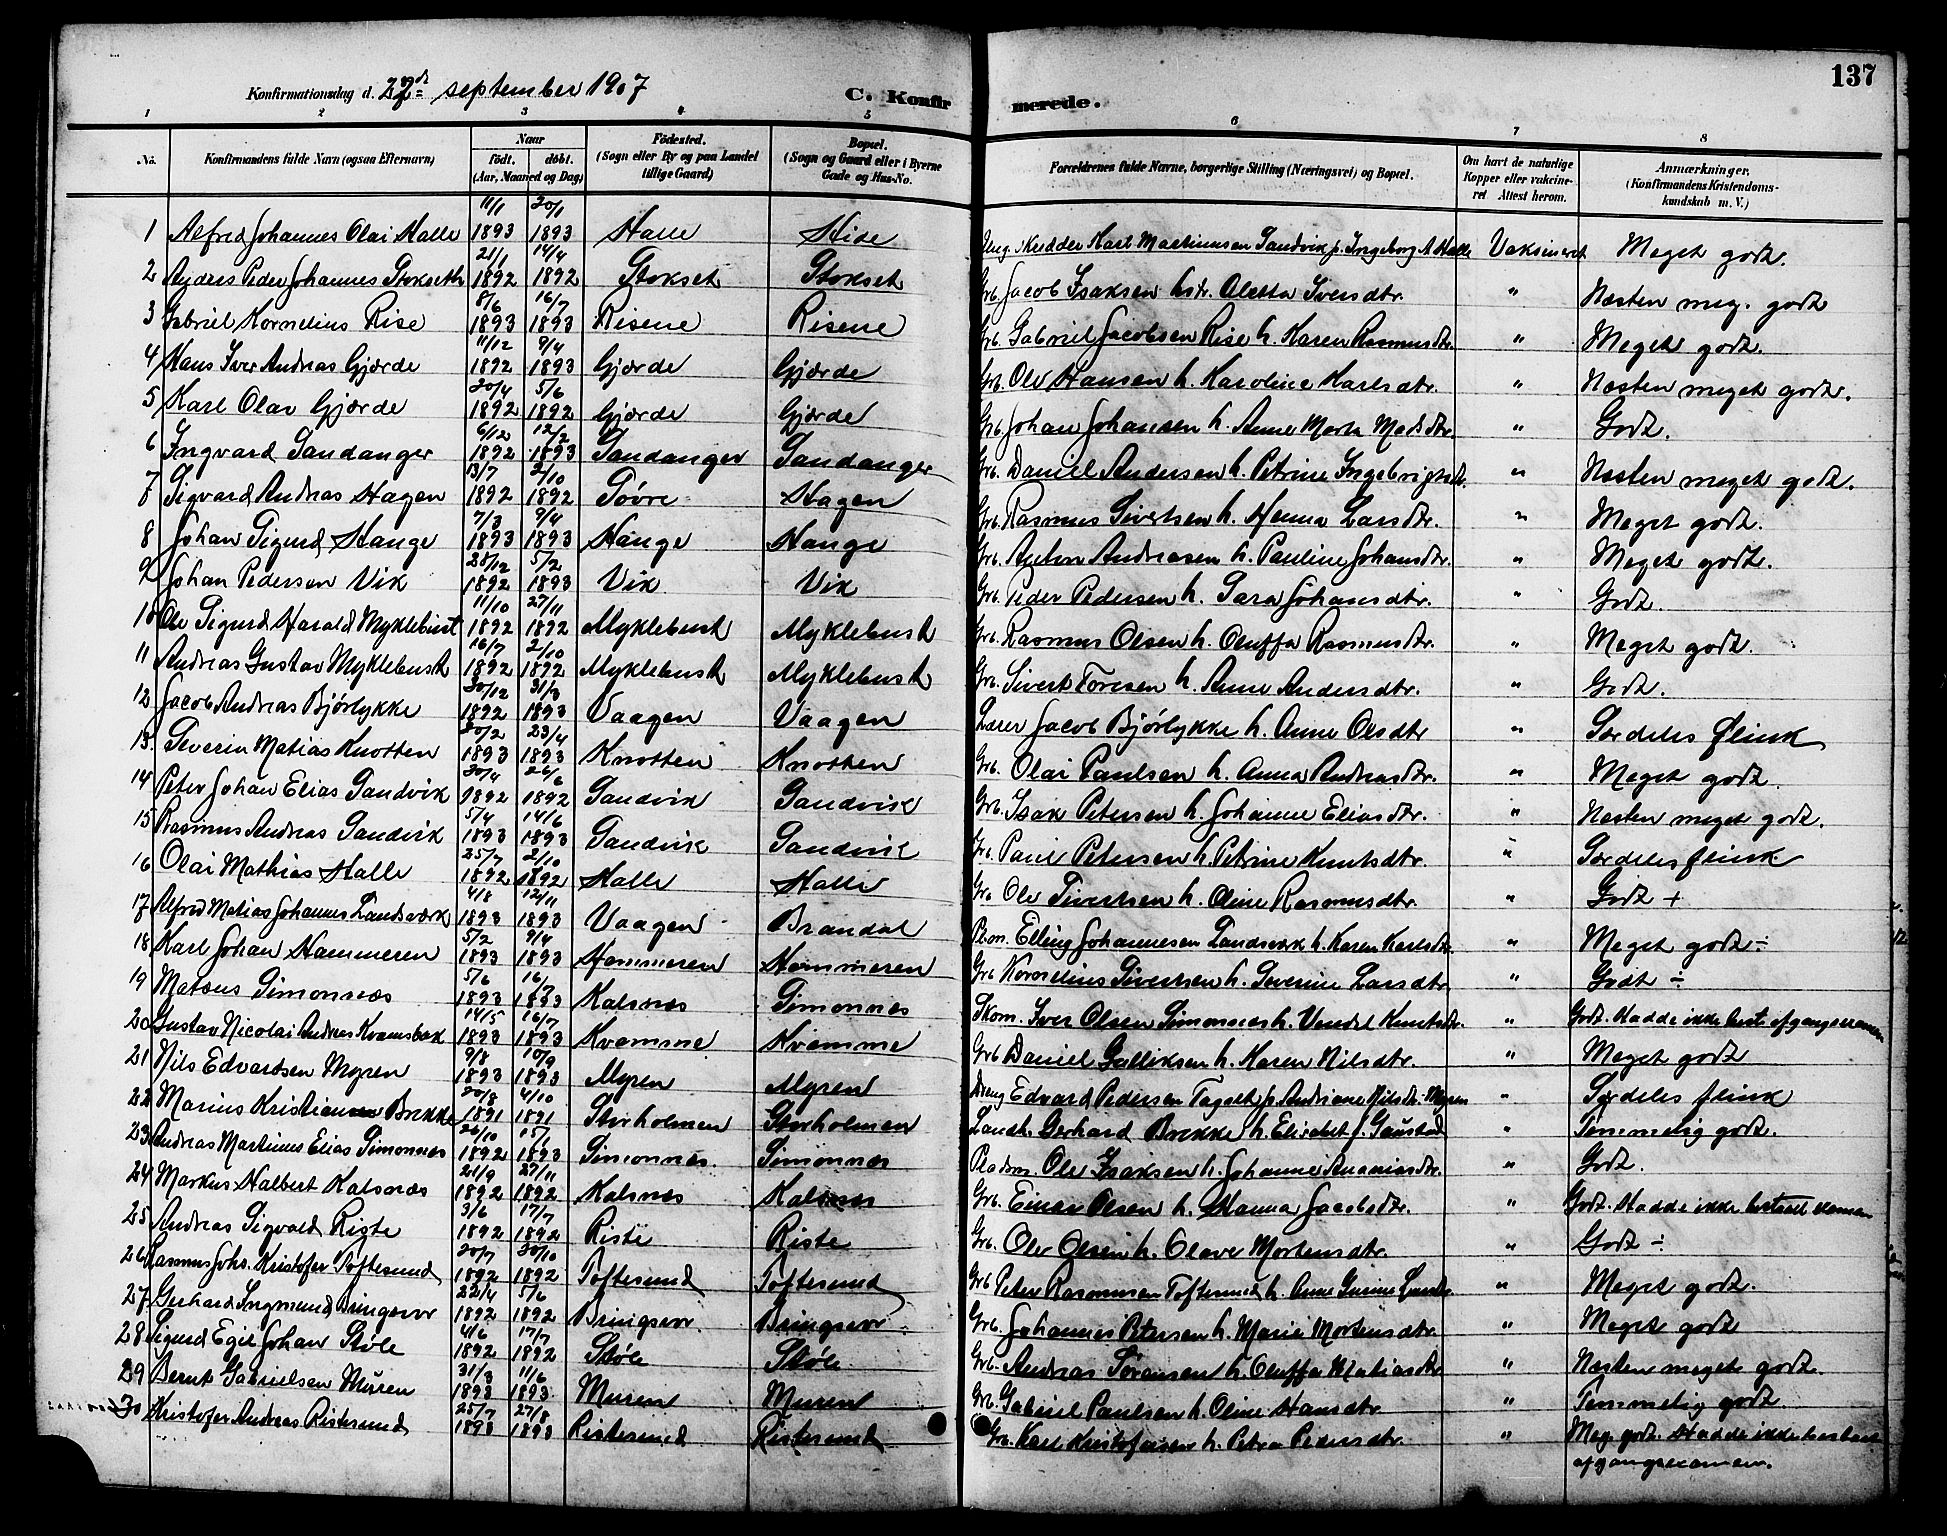 137
Konfirmationsdag d. 22de september 1907
C. Konfirmerede.
1 2 3 4 5 6 7 8
No.
Konfirmandens fulde Navn (ogsaa Efternavn)
Naar
født. døbt.
(Aar, Maaned og Dag)
Fødested.
(Sogn eller By og paa Landet
tillige Gaard)
Bopæl.
(Sogn og Gaard eller i Byerne
Gade og Hus-No.
Forældrenes fulde Navne, borgerlige Stilling (Næringsvei) og Bopæl.
Om havt de naturlige
Kopper eller vakcine-
ret Attest herom.
Anmærkninger,
(Konfirmandens Kristendoms-
kundskab m. V.)
1 Alfred Johannes Olai Halle 11/1 1893 20/1 1893 Halle Hide Ung. Karl Martinussen Sandvik p. Ingeborg A Halle Vaksineret Meget godt.
2 Anders Peder Johannes Stokseth 21/1 1892 14/4 1892 Stokset Stokset Grb. Jacob Isaksen hstr. Oletta Iversdtr. " Næsten meg. godt
3 Gabriel Kornelius Rise 8/6 1893 16/7 1893 Risene Risene Grb. Gabriel Jacobsen Rise h. Karen Rasmusdtr. " Meget godt.
4 Hans Iver Andreas Gjærde 11/12 1892 9/4 1893 Gjærde Gjærde Grb. Ole Hansen h. Karoline Karlsdtr. " Næsten meget godt.
5 Karl Olav Gjærde 20/4 1892 5/6 1892 Gjærde Gjærde Grb. Johan Johansen h. Anne Marta Madsdtr. " Godt.
6 Ingvard Sandanger 6/12 1892 12/2 1893 Sandanger Sandanger Grb. Daniel Andersen h. Petrine Ingebrigtsdt. " Næsten meget godt.
7 Sigvard Andreas Hagen 13/7 1892 2/10 1892 Søvre Hagen Grb. Rasmus Sivertsen h. Hanna Larsdtr. " Meget godt.
8 Johan Sigurd Hauge 7/3 1893 9/4 1893 Hauge Hauge Grb. Anton Andreasen h. Pauline Johansdtr. " Meget godt.
9 Johan Pedersen Vik 28/12 1892 5/2 1893 Vik Vik Grb. Peder Pedersen h. Sara Johansdtr. " Godt.
10 Ole Sigurd Harald Myklebust 11/10 1892 27/11 1892 Myklebust Myklebust Grb. Rasmus Olsen h. Oluffa Rasmusdtr. " Meget godt.
11 Andreas Gustav Myklebust 16/7 1892 2/10 1892 Myklebust Myklebust Grb. Sivert Toresen h. Anne Andersdtr. " Godt.
12 Jacob Andreas Bjørlykke 30/12 1892 31/3 1893 Vaagen Vaagen Lærer Jacob Bjørlykke h. Anne Olsdtr " Særdeles flink
13. Severin Matias Knotten 20/2 1893 23/4 1893 Knotten Knotten Grb. Olai Paulsen h. Anna Andreasdtr. " Meget godt.
14 Peter Johan Elias Sandvik 30/4 1892 26/6 1892 Sandvik Sandvik Grb. Isak Petersen h. Johanne Eliasdtr. " Næsten meget godt.
15 Rasmus Andreas Sandvik 5/4 1893 14/6 1893 Sandvik Sandvik Grb. Paul Petersen h. Petrine Knutsdtr. " Særdeles flink
16 Olai Mathias Halle 25/7 1892 2/10 1892 Halle Halle Grb Ole Sivertsen h. Oline Rasmusdtr. " Godt +
17 Alfred Matias Johannes Landsværk 4/8 1893 12/11 1893 Vaagen Brandal Plsm. Elling Johannesen Landsværk h. Karen Karlsdtr. " Meget godt ÷
18 Karl Johan Hammeren 5/2 1893 9/4 1893 Hammeren Hammeren Grb Kornelius Sivertsen h. Severine Larsdtr " Godt ÷
19 Mateus Simonnæs 5/6 1893 16/7 1893 Kalsnæs Simonnæs Skom. Iver Olsen Simonnæs h. Vendel Knutsdtr. " Godt. Hadde ikke best. afgangsexamen
20 Gustav Nicolai Andreas Kvamsbak 14/5 1893 16/7 1893 Kvamme Kvamme Grb Daniel Gulliksen h. Karen Nilsdtr. " Meget godt
21 Nils Edvardsen Myren 9/8 1893 10/9 1893 Myren Myren Ung Edvard Pedersen Tagset p. Andriane Nilsdtr. Myren " Særdeles flink
22 Marius Kristiansen Brekke 20/8 1891 4/10 1891 Storholmen Storholmen Landh. Gerhard Brekke h. Elisabet f. Gaustad " Temmelig godt.
23 Andreas Martinus Elias Simonnæs 26/10 1892 15/1 1893 Simonnæs. Simonnæs Pladsm. Ole Isaksen h. Johanne Ananiasdtr. " Godt.
24 Markus Halbert Kalsnæs 21/9 1892 27/11 1892 Kalsnæs Kalsnæs Grb. Einar Olsen h. Hanna Jacobsdtr. " Godt. Hadde ikke bestaaet examen
25 Andreas Sigvald Riste 3/6 1892 17/7 1892 Riste Riste Grb. Ole Olsen h. Olave Mortensdtr. " Godt ÷
26 Rasmus Johs. Kristofer Toftesund 20/7 1892 30/10 1892 Toftesund Toftesund Grb Peter Rasmussen Toftesund h. Anne Gurine Larsdtr " Meget godt.
27 Gerhard Ingmund Bringsvor 22/4 1892 5/6 1892 Bringsvor. Bringsvor Grb. Johannes Petersen h. Marie Mortensdtr. " Meget godt
28 Sigurd Egil Johan Støle 4/6 1892 17/7 1892 Støle Støle. Grb. Andreas Sørensen h. Oluffa Matiasdtr " Næsten meget godt.
29 Bernt Gabrielsen Muren 31/3 1893 11/6 1893 Muren Muren Gr. Gabriel Paulsen h. Oline Hansdtr " Temmelig godt.
30 Kristofer Andreas Ristesund 25/7 1893 27/8 1893 Ristesund Ristesund Grb. Karl Kristofersen h. Petra Pedersdtr. " Meg. godt. Hadde ikke bestaaet
afgangsexamen.